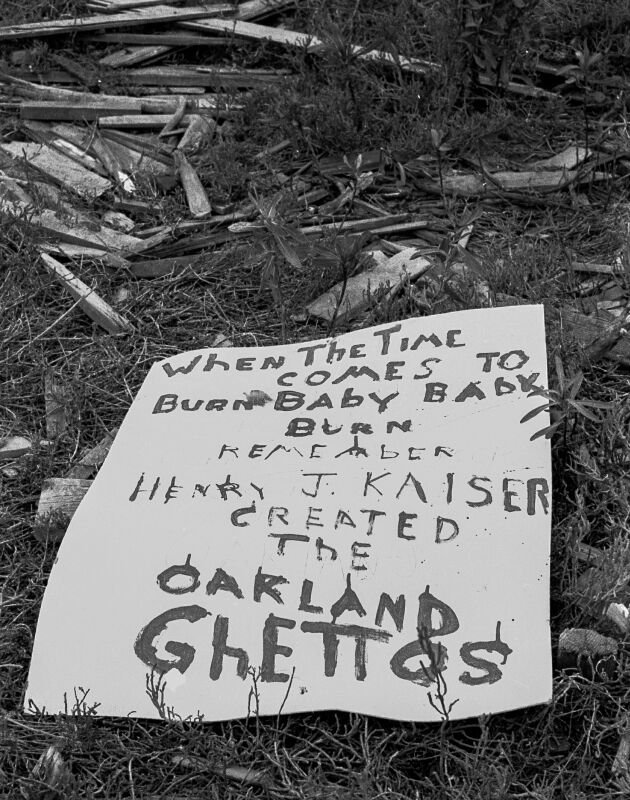 WhEN ThE TIME
COMES TO
BURN BABY BABY
BURN
REMEMBER
HENRY J. KAISER
CREATED
ThE
OAKLAND
GhETTOS